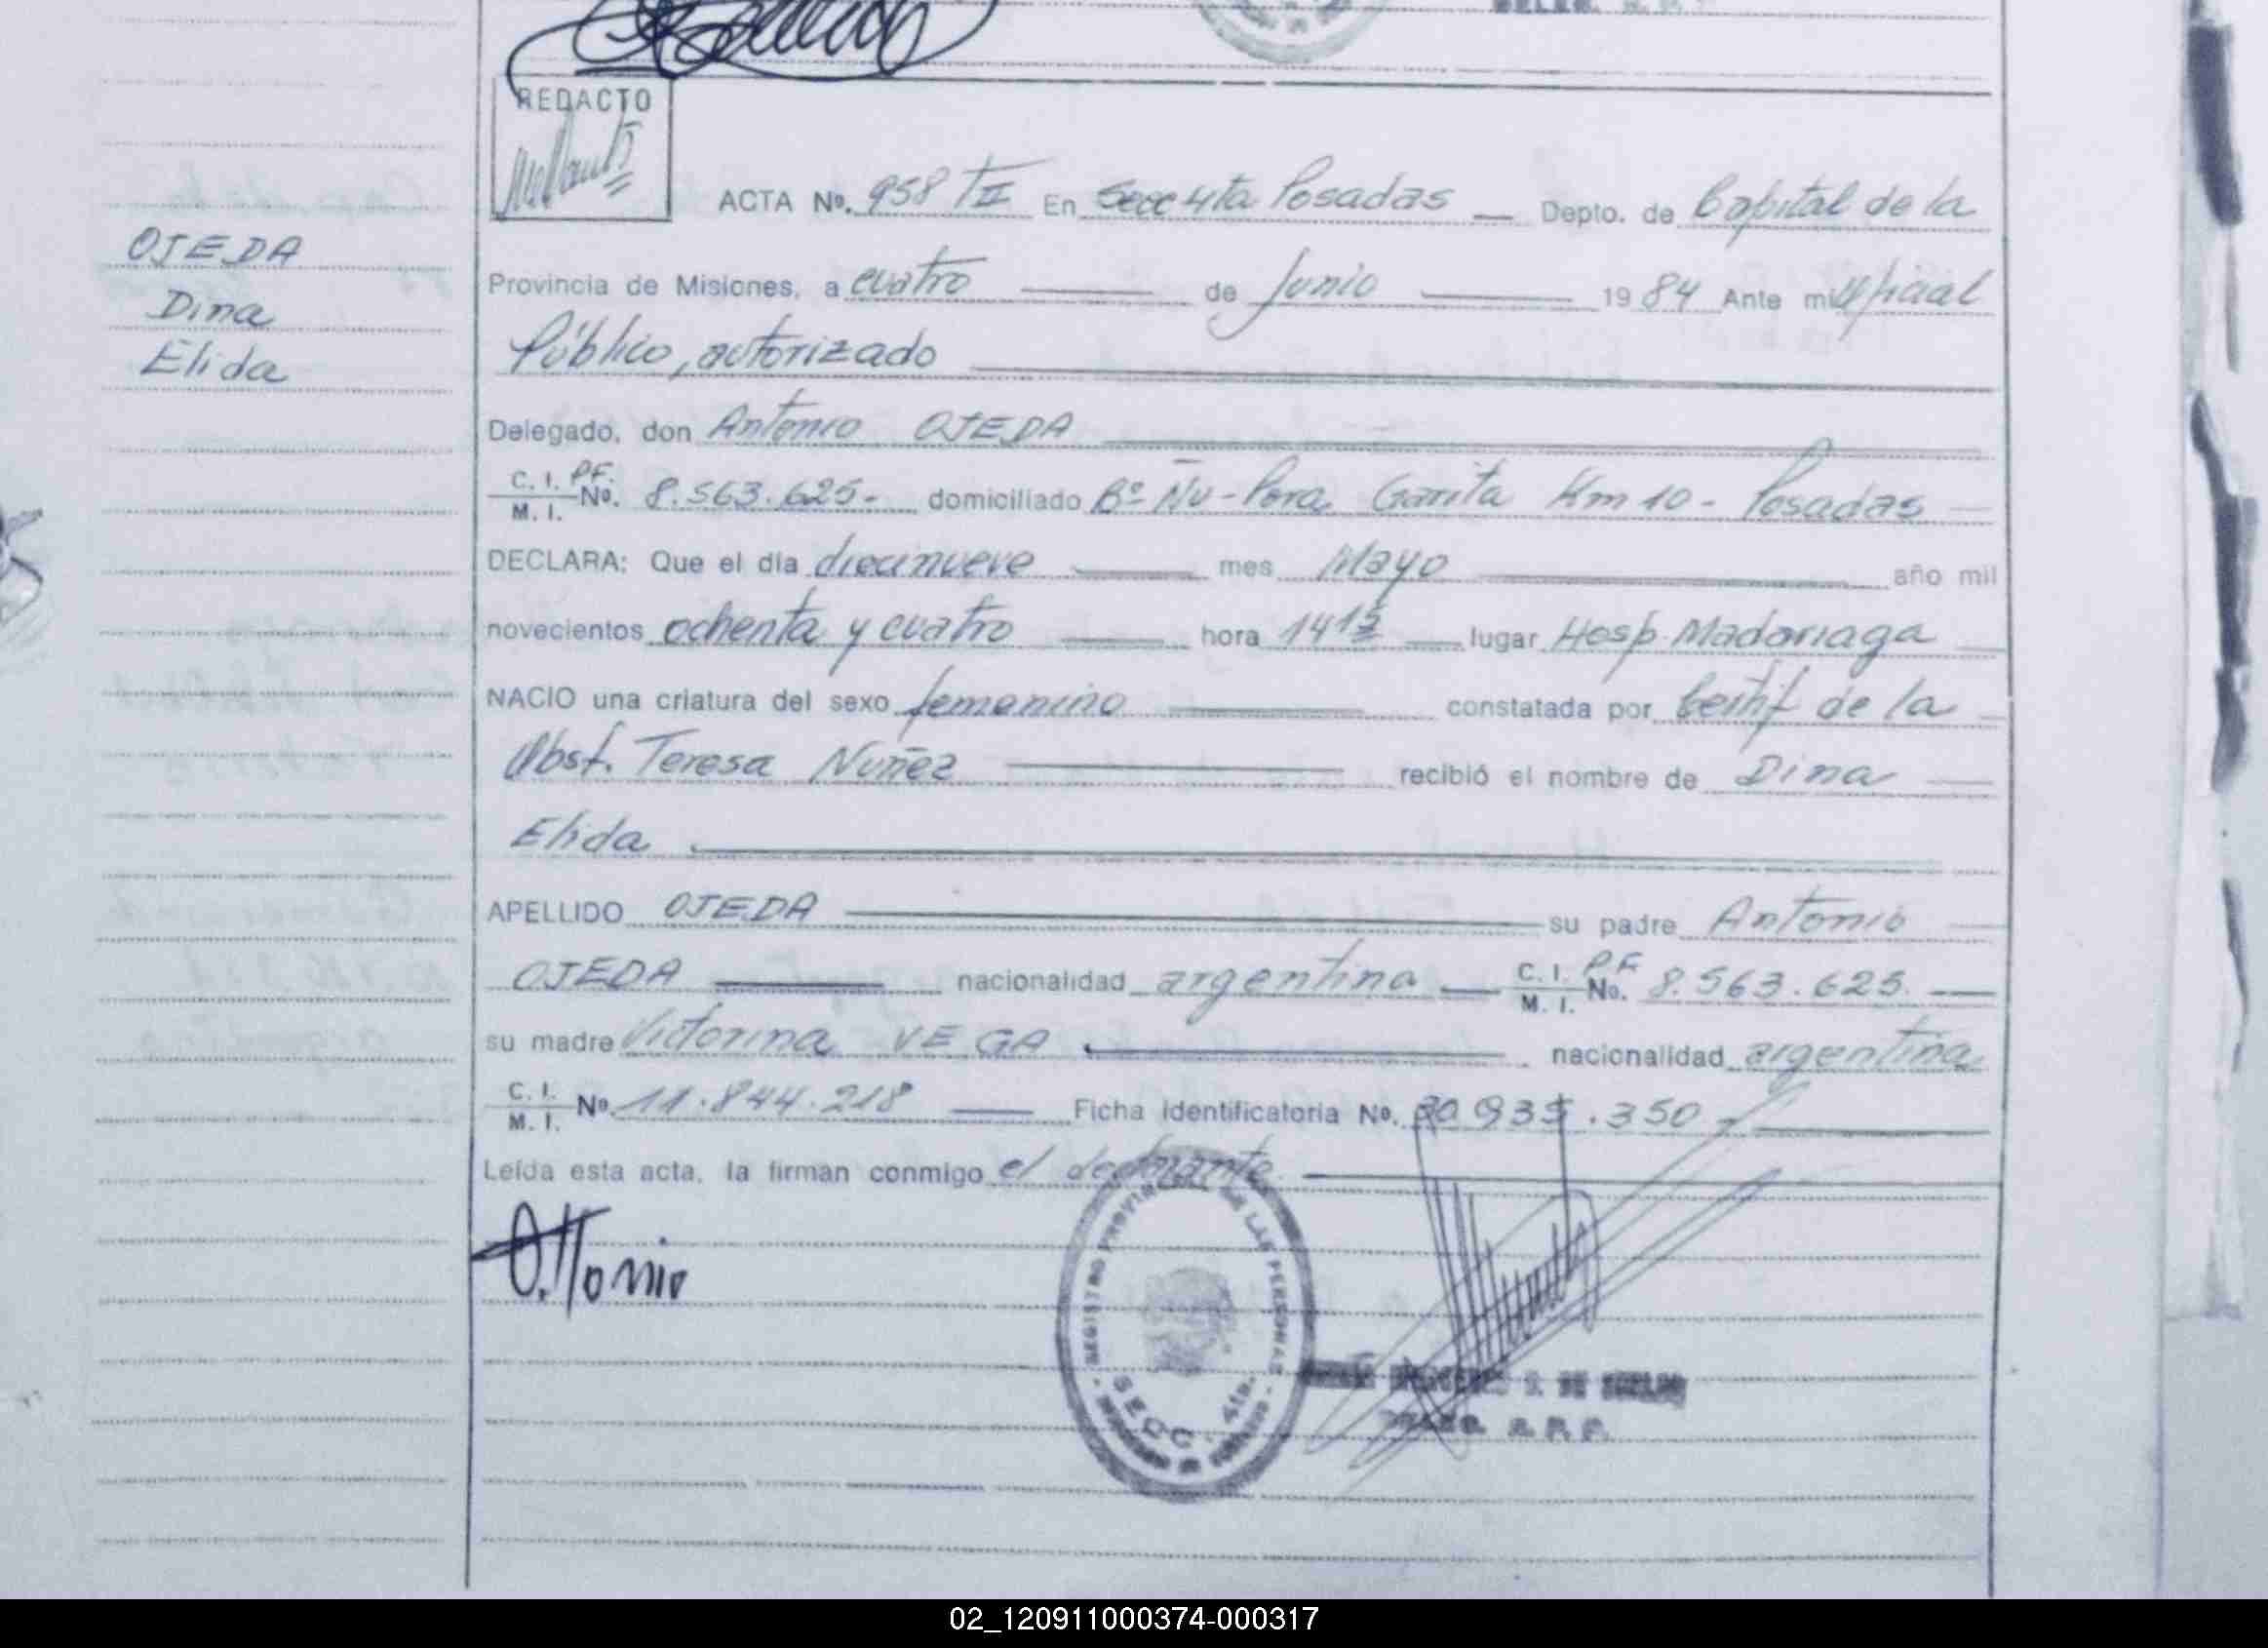 REDACTO
ACTA Nº. 958 TII En Secc 4ta Posadas — Depto. de Capital de la
OJEDA
Dina
Elida
Provincia de Misiones, a cuatro de Junio 1984 Ante mi Oficial
Público, autorizado
Delegado, don Antonio OJEDA
C. I. PF. M. I. Nº. 8.563.625.- domiciliado Bº Ñu-Pora Garita Km 10 - Posadas
DECLARA: Que el día diecinueve mes Mayo año mil
novecientos ochenta y cuatro hora lugar Hosp. Madariaga
NACIO una criatura del sexo femenino constatada por Certif de la
Obst. Teresa Nuñez recibió el nombre de Dina
Elida
APELLIDO OJEDA su padre Antonio
OJEDA nacionalidad argentina C. I. P.F M. I. No. 8.563.625.
su madre Victorina VEGA nacionalidad argentina
C. I. M. I. Nº. 11.844.218 Ficha identificatoria Nº. 30.935.350 -
Leída esta acta, la firman conmigo el declarante.
REGISTRO PROVINCIAL DE LAS PERSONAS
SECC. 4ta.
02_120911000374-000317